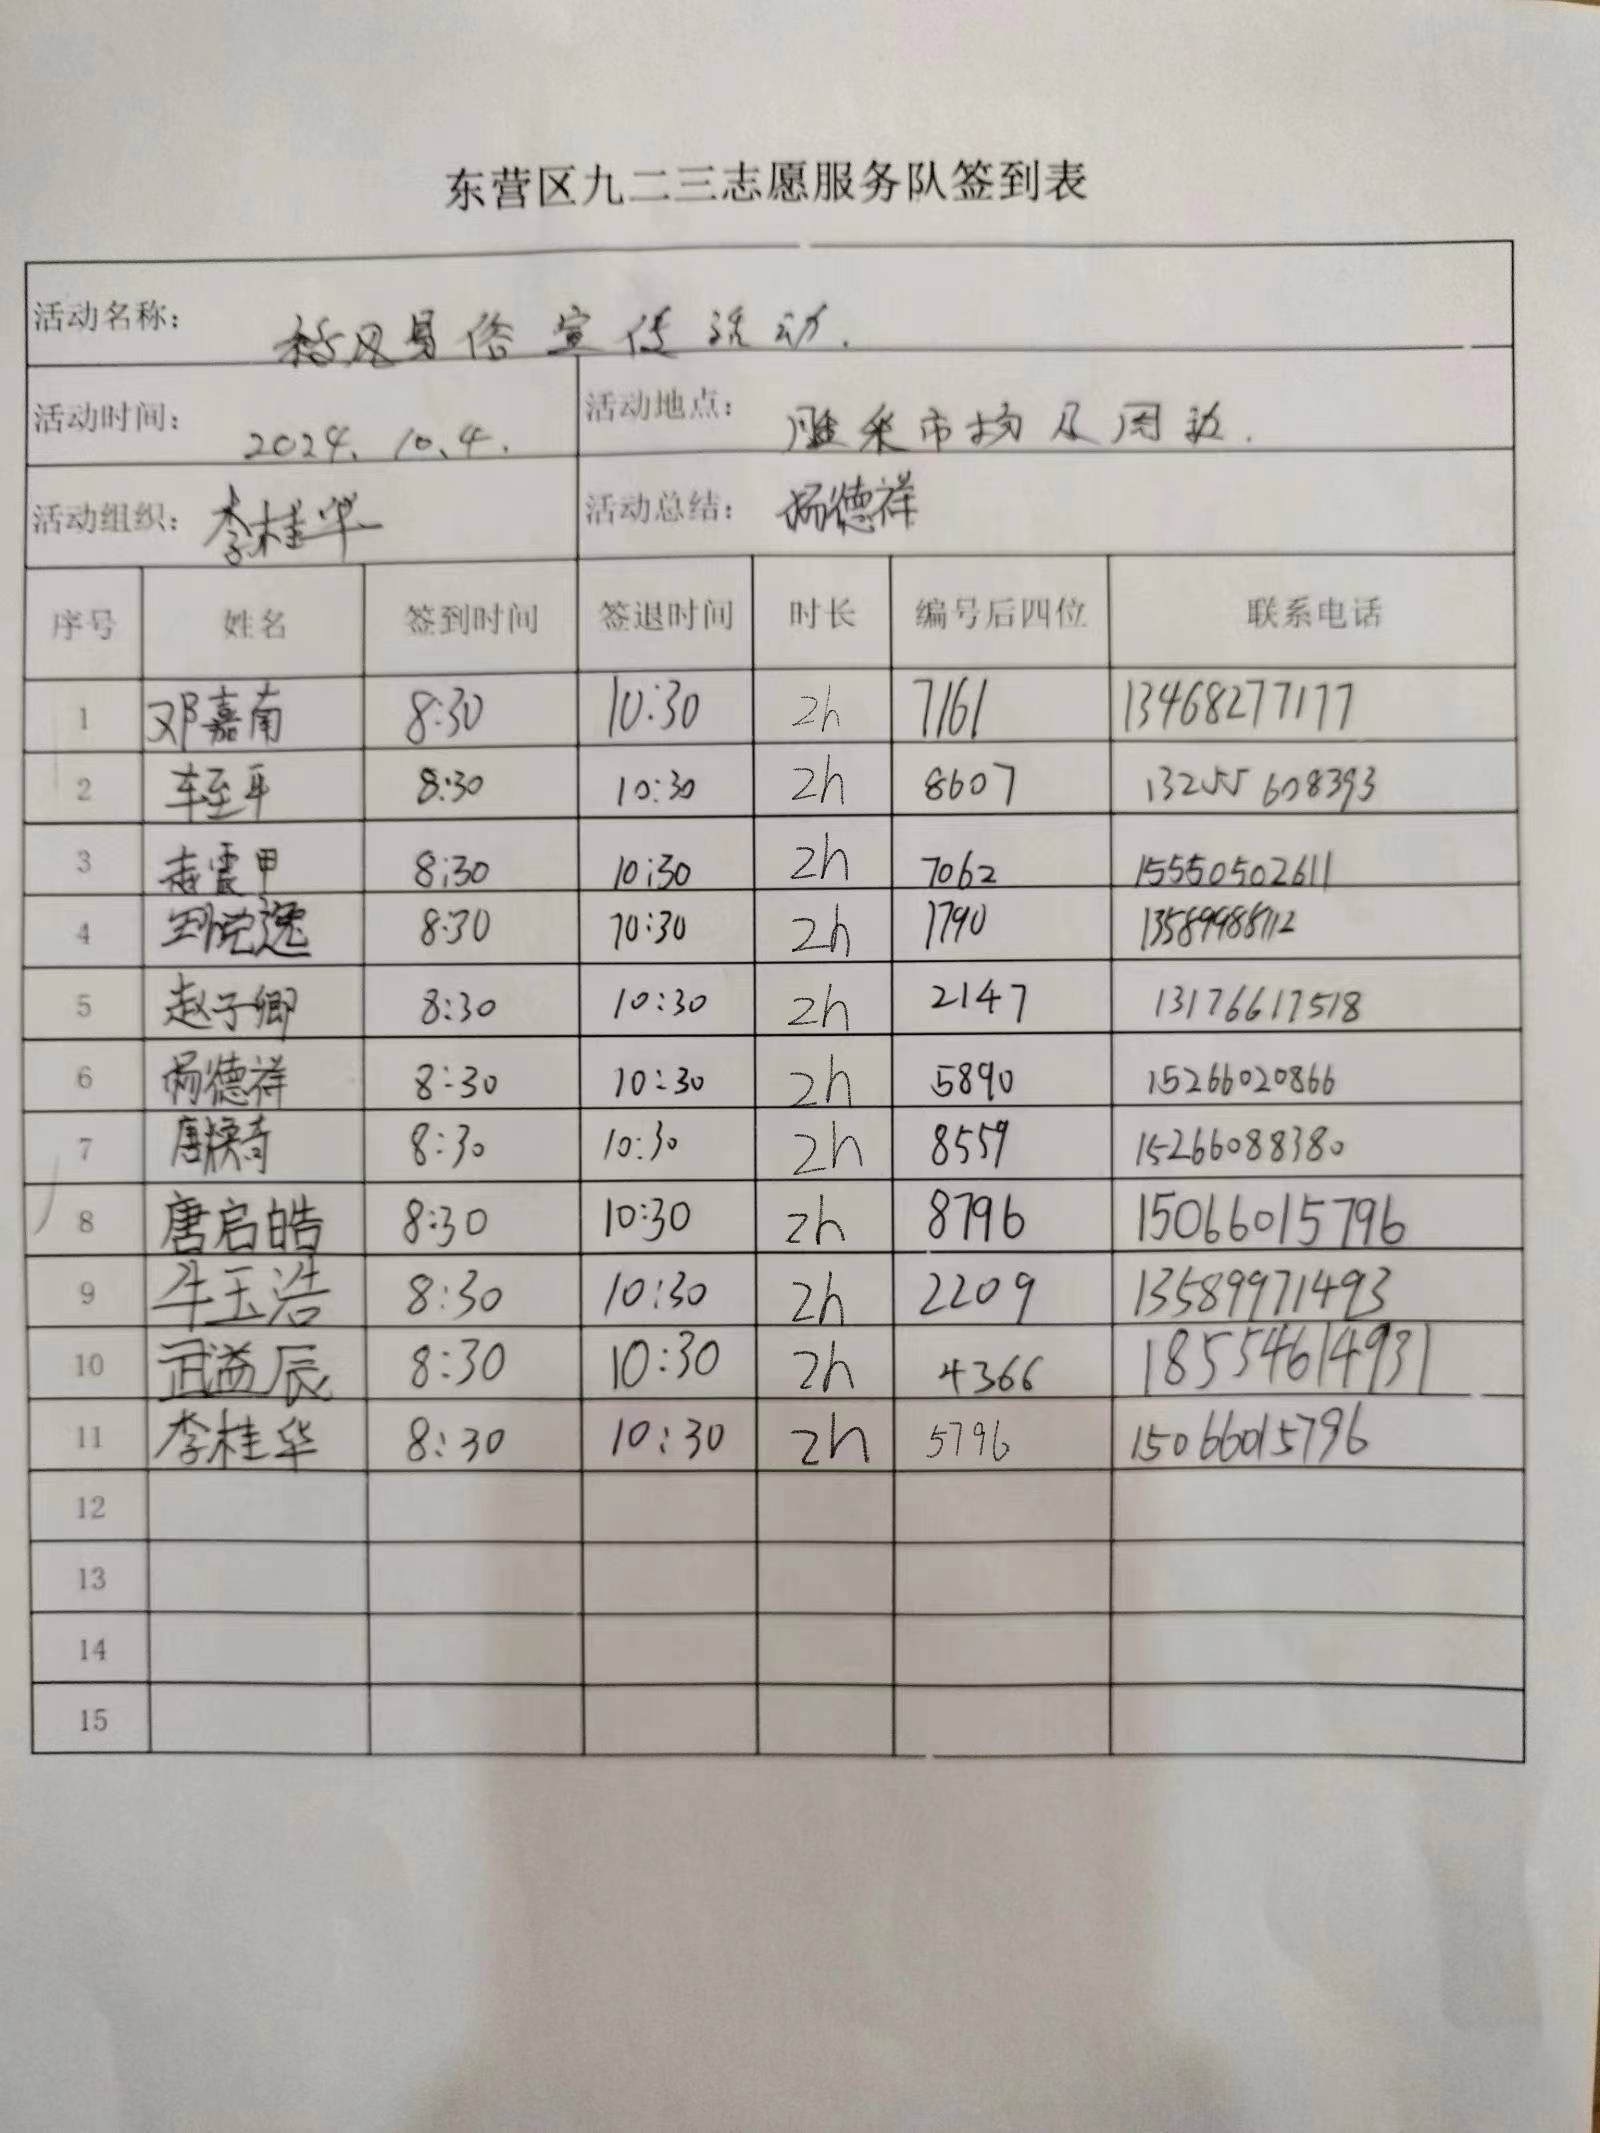 东营区九二三志愿服务队签到表
活动名称： 移风易俗宣传活动.
活动时间： 2024.10.4. 活动地点： 胜采市场及周边.
活动组织： 李桂华 活动总结： 杨德祥
序号 姓名 签到时间 签退时间 时长 编号后四位 联系电话
1 邓嘉南 8:30 10:30 2h 7161 13468277177
2 车至平 8:30 10:30 2h 8607 13255608393
3 赵震甲 8:30 10:30 2h 7062 15550502611
4 刘悦逸 8:30 10:30 2h 1790 13589988112
5 赵子卿 8:30 10:30 2h 2147 13176617518
6 杨德祥 8:30 10:30 2h 5890 15266020866
7 唐 奇 8:30 10:30 2h 8559 15266088380
8 唐启皓 8:30 10:30 2h 8796 15066015796
9 牛玉浩 8:30 10:30 2h 2209 13589971493
10 武益辰 8:30 10:30 2h 4366 18554614931
11 李桂华 8:30 10:30 2h 5796 15066015796
12
13
14
15